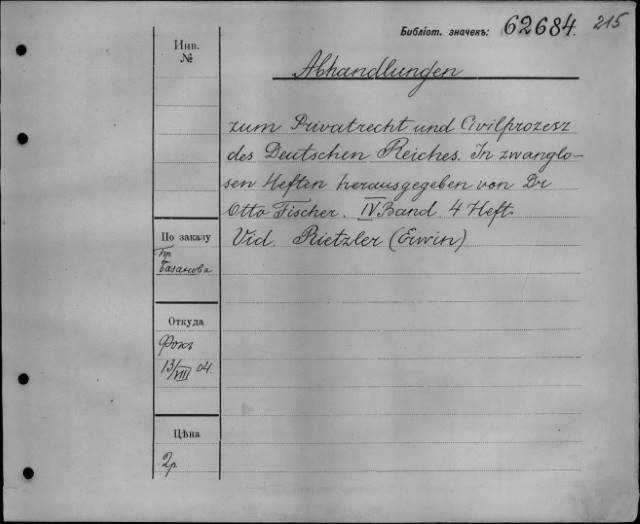 Библіот. значекъ: 62684. 215
Инв.
№
Abhandlungen
zum Privatrecht und Civilprozesz
des Deutschen Reiches. In zwanglo-
sen Heften herausgegeben von Dr
Otto Fischer. IV Band. 4 Heft.
Vid. Rietzler (Erwin)
По заказу
Пр.
Базанова
Откуда
Фокъ
13/VIII 04.
Цѣна
2р.